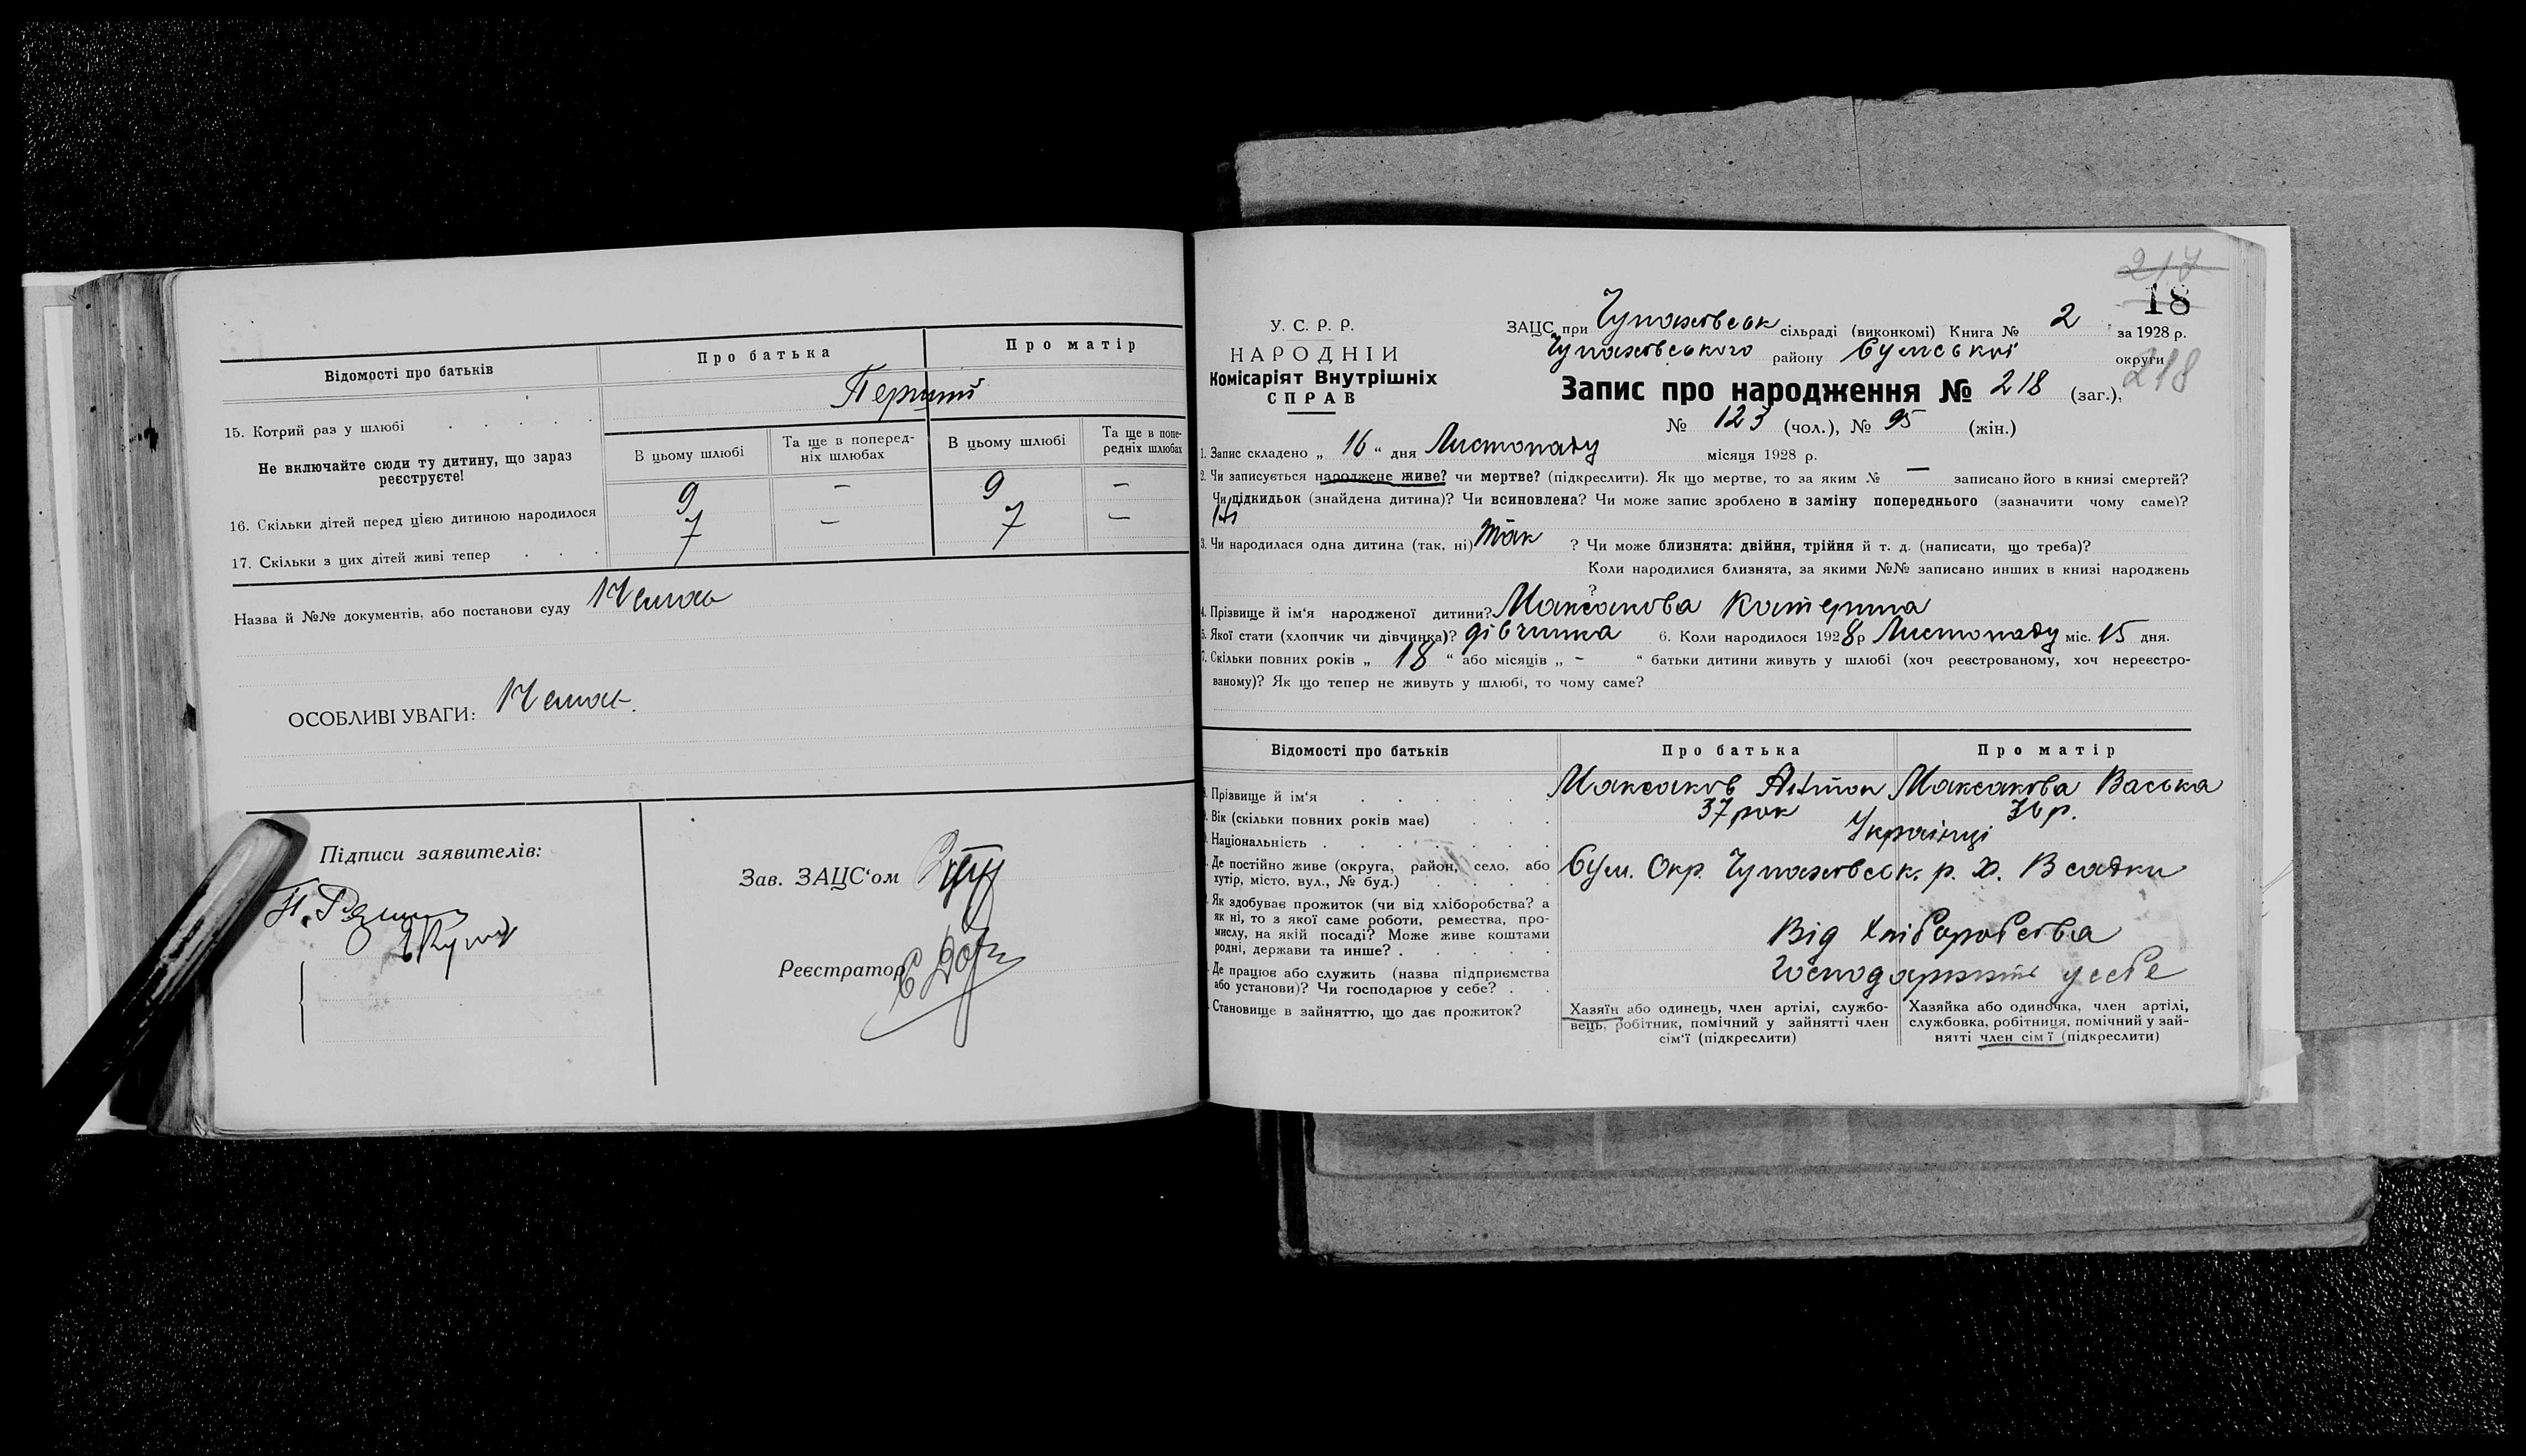 Відомості про батьків
Про батька
Про матір
15. Котрий раз у шлюбі
Перший
Не включайте сюди ту дитину, що зараз реєструєте!
В цьому шлюбі
Та ще в поперед-
ніх шлюбах
В цьому шлюбі
Та ще в попе-
редніх шлюбах
16. Скільки дітей перед цією дитиною народилося 9 – 9 –
17. Скільки з цих дітей живі тепер 7 – 7 –
Назва й №№ документів, або постанови суду Немає
ОСОБЛИВІ УВАГИ: Немає.
Підписи заявителів:
Зав. ЗАЦС'ом
Реєстратор
217
18
У. С. Р. Р.
НАРОДНІЙ
Комісаріят Внутрішніх
СПРАВ
ЗАЦС при Чупахівськ сільраді (виконкомі) Книга № 2 за 1928 р.
Чупахівського району Сумської округи
218
Запис про народження № 218 (заг.),
№ 123 (чол.), № 95 (жін.)
1. Запис складено „ 16 “ дня Листопаду місяця 1928 р.
2. Чи записується народжене живе? чи мертве? (підкреслити). Як що мертве, то за яким № — записано його в книзі смертей?
Чи підкидьок (знайдена дитина)? Чи всиновлена? Чи може запис зроблено в заміну попереднього (зазначити чому саме)?
Ні
3. Чи народилася одна дитина (так, ні) Так ? Чи може близнята: двійня, трійня й т. д. (написати, що треба)?
Коли народилися близнята, за якими №№ записано инших в книзі народжень
?
4. Прізвище й ім'я народженої дитини? Максакова Катерина
5. Якої стати (хлопчик чи дівчинка)? дівчинка 6. Коли народилося 1928 р Листопаду міс. 15 дня.
7. Скільки повних років „ 18 “ або місяців „ - “ батьки дитини живуть у шлюбі (хоч реєстрованому, хоч нереєстро-
ваному)? Як що тепер не живуть у шлюбі, то чому саме?
Відомості про батьків
Про батька
Про матір
Прізвище й ім'я Максаков Антон Максакова Васька
Вік (скільки повних років має) 37 рок 36 р.
Національність Українці
Де постійно живе (округа, район, село, або
хутір, місто, вул., № буд.) Сум. Окр. Чупахівськ. р. х. Всадки
Як здобуває прожиток (чи від хліборобства? а
як ні, то з якої саме роботи, ремества, про-
мислу, на якій посаді? Може живе коштами
родні, держави та инше? Від Хліборобства
Де працює або служить (назва підприємства
або установи)? Чи господарює у себе? у себе
Становище в зайняттю, що дає прожиток?
Хазяїн або одинець, член артілі, службо-
вець, робітник, помічний у зайнятті член
сім'ї (підкреслити)
Хазяйка або одиночка, член артілі,
службовка, робітниця, помічний у зай-
нятті член сім'ї (підкреслити)